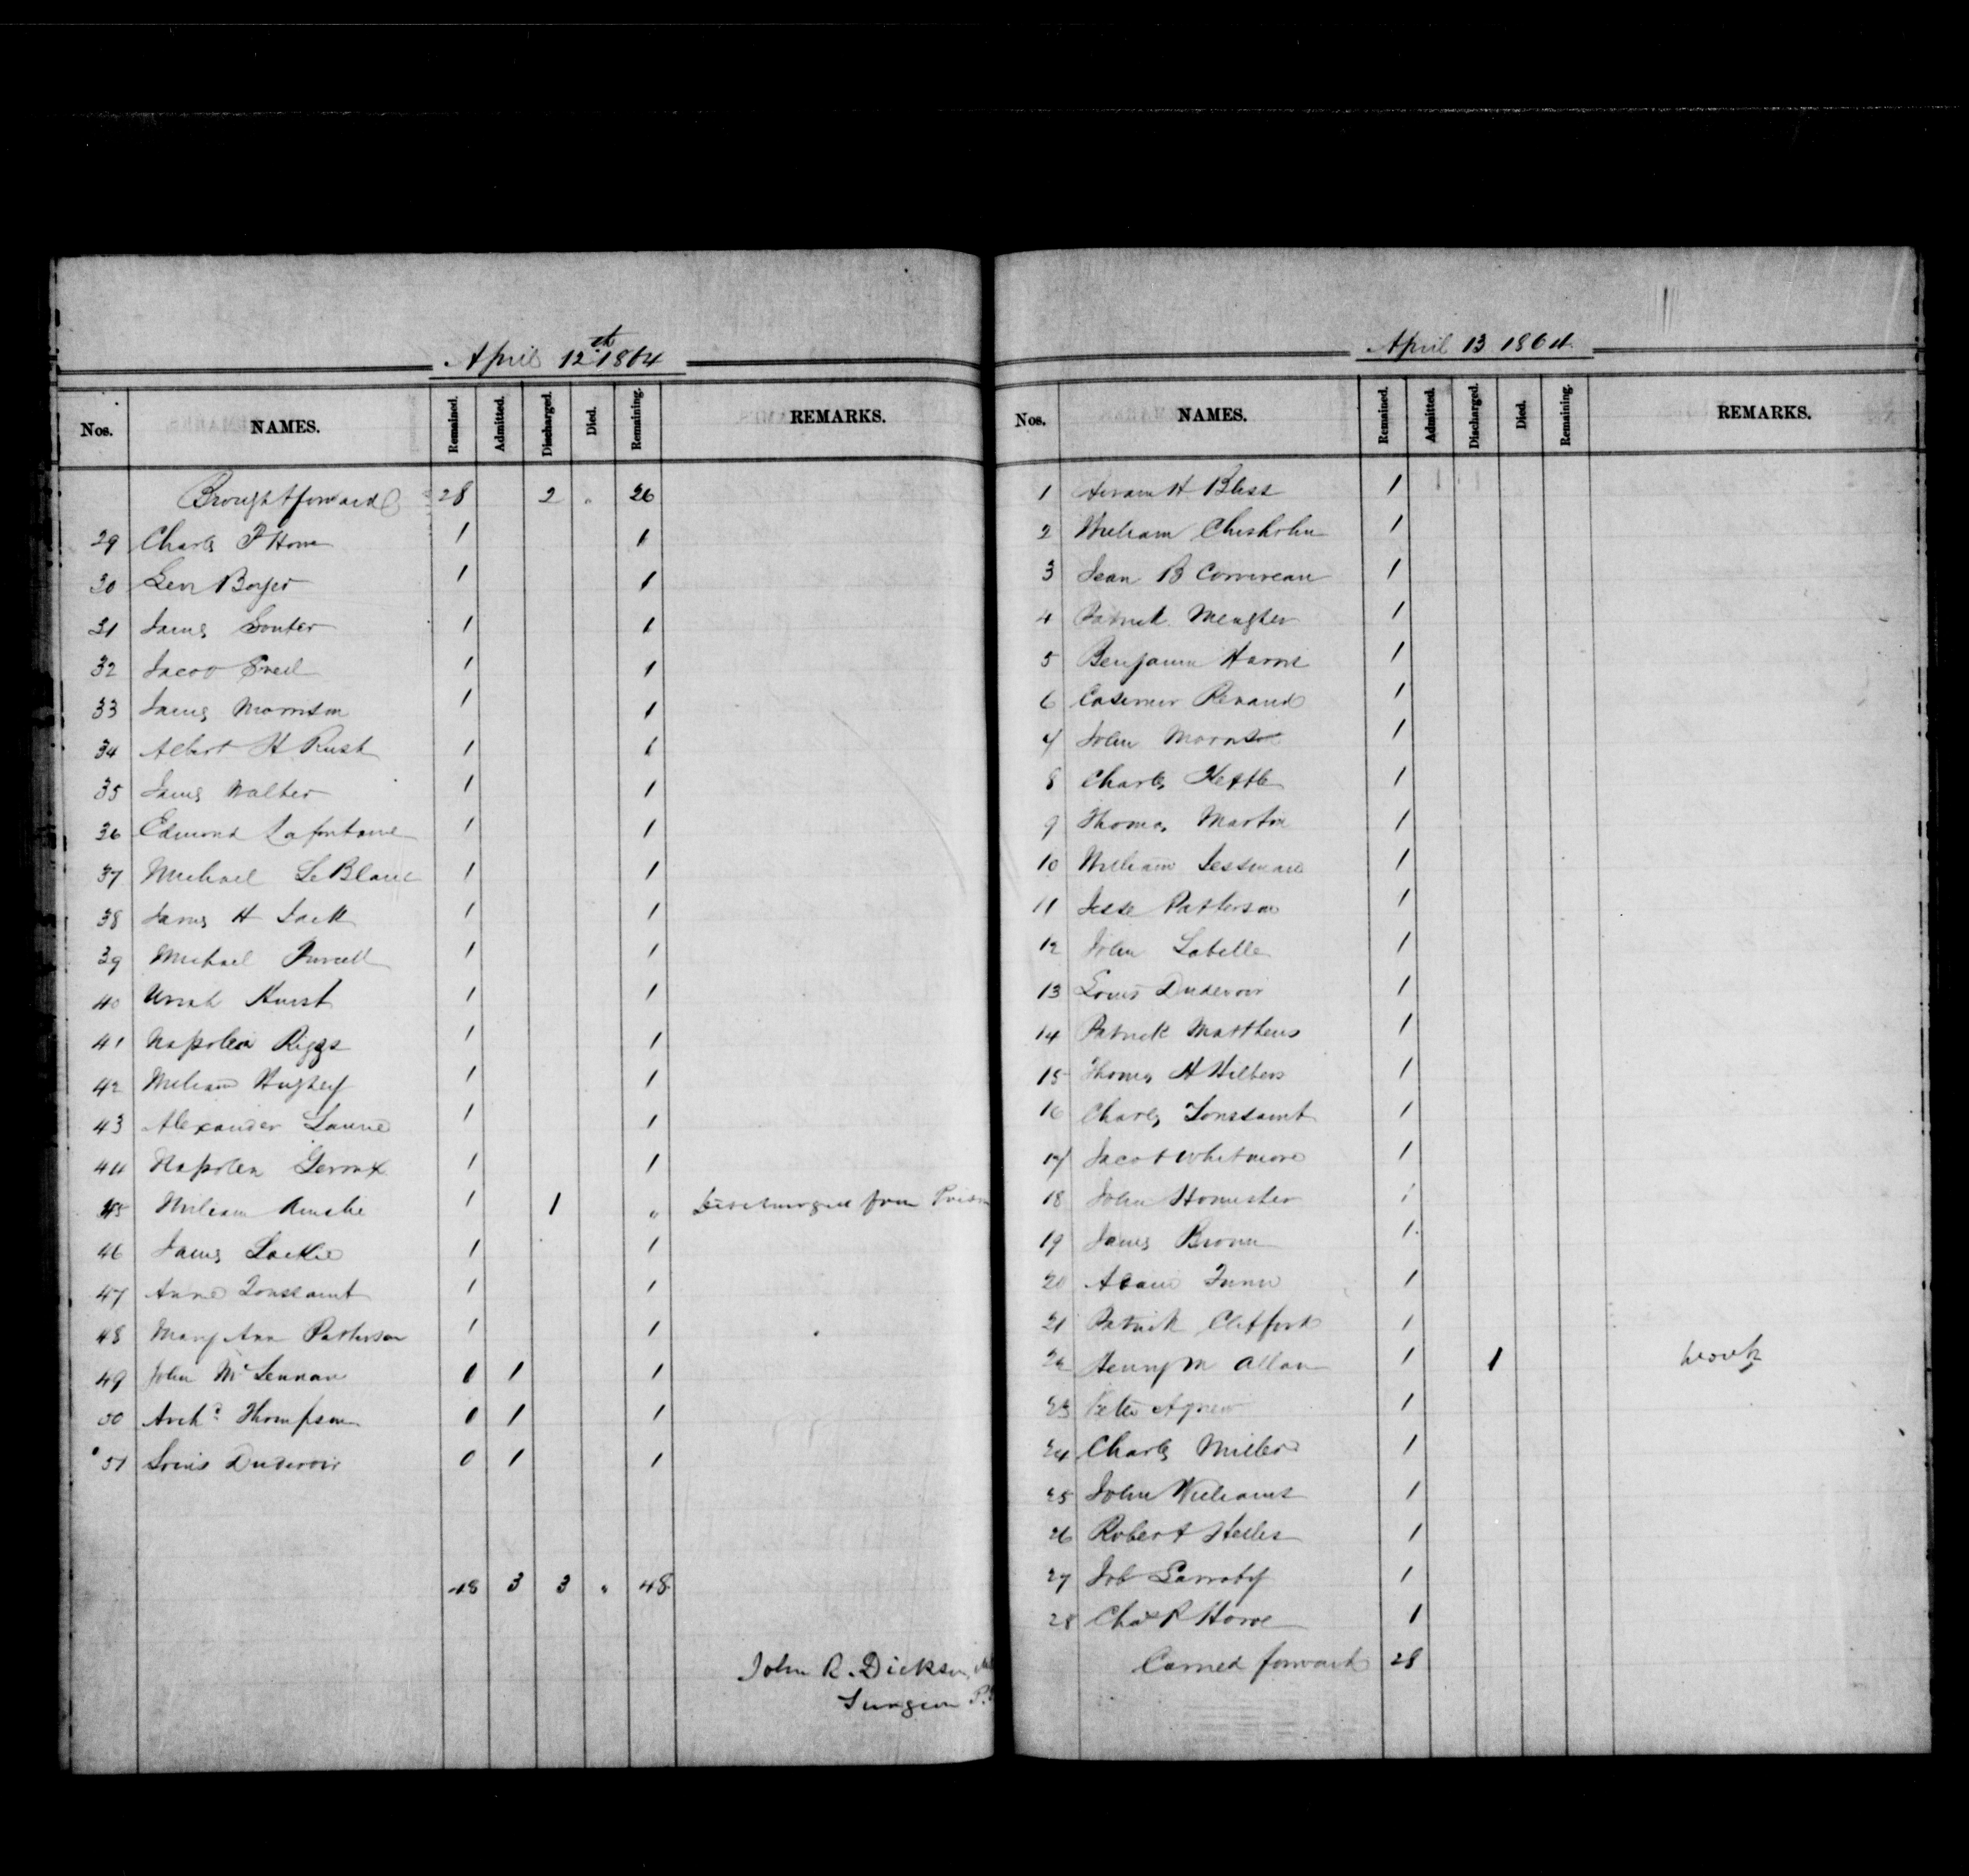 April 12th 1864
Nos. NAMES. Remained. Admitted. Discharged. Died. Remaining. REMARKS.
Brought forward 28 2 " 26
29 Charles P Howe 1 1
30 Levi Boyer 1 1
31 James Souter 1 1
32 Jacob 1 1
33 James Morrison 1 1
34 Albert H Rush 1 1
35 James Walker 1 1
36 Edmond Lafontaine 1 1
37 Michael LeBlanc 1 1
38 James H Jack 1 1
39 Michael Purcell 1 1
40 Uriah Hurst 1 1
41 Napoleon Riggs 1 1
42 William Hughey 1 1
43 Alexander Laurie 1 1
44 Napoleon Geroux 1 1
45 William Ainslie 1 1 " Discharged from Prison
46 James Lackie 1 1
47 Anne Toussaint 1 1
48 Mary Ann Patterson 1 1
49 John McLennan 0 1 1
50 Archd Thompson 0 1 1
51 Louis Dudevoir 0 1 1
48 3 3 " 48
John R. Dickson
Surgeon
April 13 1864
Nos. NAMES. Remained. Admitted. Discharged. Died. Remaining. REMARKS.
1 Hiram H Bliss 1
2 William Chisholm 1
3 Jean B Corriveau 1
4 Patrick Meagher 1
5 Benjamin Harris 1
6 Casimir Renaud 1
7 John Morrison 1
8 Charles Kettle 1
9 Thomas Martin 1
10 William Lessman 1
11 Jesse Patterson 1
12 John Labelle 1
13 Louis Dudevoir 1
14 Patrick Matthews 1
15 Thomas H Wilbers 1
16 Charles Toussaint 1
17 Jacob Whitmore 1
18 John 1
19 James Brown 1
20 Adam 1
21 Patrick Clifford 1
22 Henry M Allan 1 1 Work
23 Peter Agnew 1
24 Charles Miller 1
25 John Williams 1
26 Robert 1
27 Job Larraby 1
28 Chas P Howe 1
Carried forward 28